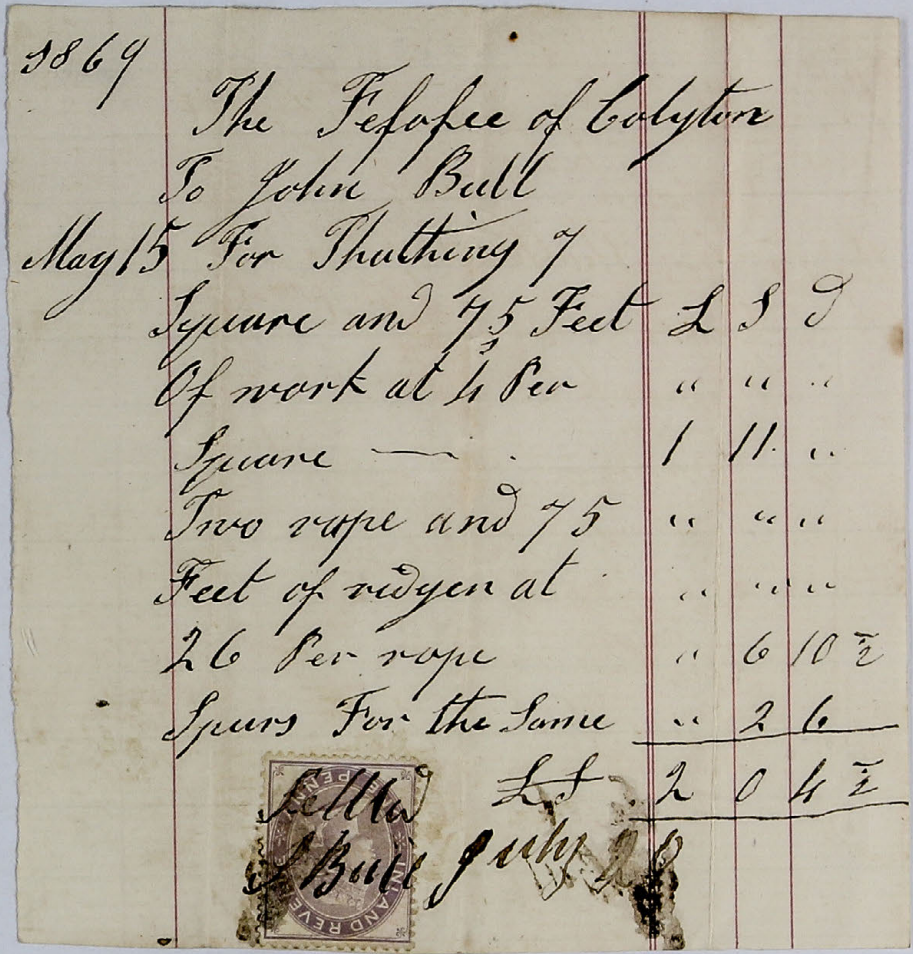 1869
The Fefofee of Colyton
To John Bull
May 15 For Thathing 7
Square and 75 Feet £ S d
s
Of work at 4 Per " " "
Square — 1 11 "
Two rope and 75 " " "
Feet of ridgen at " " "
26 Per rope " 6 10 ½
Spurs For the Same " 2 6
£S 2 0 4 ½
Settld
J Bull July 28
INLAND REVE
PENN